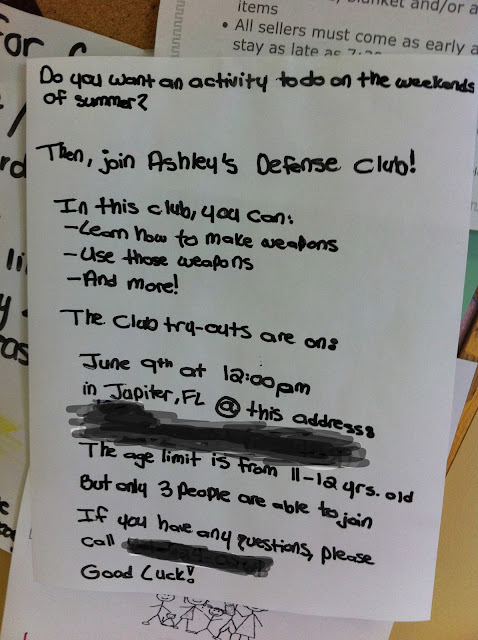 items
• All sellers must come as early a
stay as late as 7:30
Do you want an activity to do on the weekends
of summer?
Then, join Ashley's Defense Club!
In this club, you can:
-Learn how to make weapons
-Use those weapons
-And more!
The Club try-outs are on:
June 9th at 12:00pm
in Jupiter, FL @ this address:
The age limit is from 11-12 yrs. old
But only 3 people are able to join
If you have any questions, please
call
Good Luck!